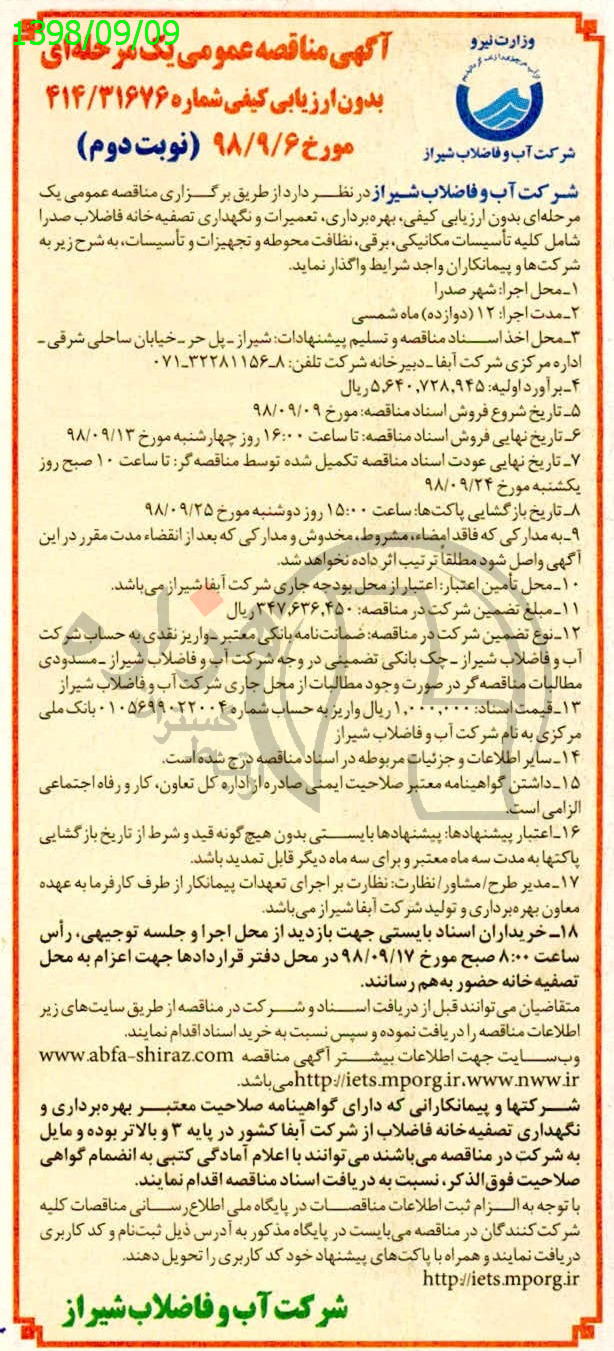 1398/09/09
وزارت نیرو
شرکت آب و فاضلاب شیراز
آگهی مناقصه عمومی یک مرحله‌ای
بدون ارزیابی کیفی شماره ۴۱۴/۳۱۶۷۶
مورخ ۹۸/۹/۶ (نوبت دوم)
شرکت آب و فاضلاب شیراز در نظر دارد از طریق برگزاری مناقصه عمومی یک
مرحله‌ای بدون ارزیابی کیفی، بهره‌برداری، تعمیرات و نگهداری تصفیه‌خانه فاضلاب صدرا
شامل کلیه تأسیسات مکانیکی، برقی، نظافت محوطه و تجهیزات و تأسیسات، به شرح زیر به
شرکت‌ها و پیمانکاران واجد شرایط واگذار نماید.
۱ـ محل اجرا: شهر صدرا
۲ـ مدت اجرا: ۱۲ (دوازده) ماه شمسی
۳ـ محل اخذ اسناد مناقصه و تسلیم پیشنهادات: شیراز ـ پل حر ـ خیابان ساحلی شرقی ـ
اداره مرکزی شرکت آبفا ـ دبیرخانه شرکت تلفن: ۸ـ۳۲۲۸۱۱۵۶ـ۰۷۱
۴ـ برآورد اولیه: ۵,۶۴۰,۷۲۸,۹۴۵ ریال
۵ـ تاریخ شروع فروش اسناد مناقصه: مورخ ۹۸/۰۹/۰۹
۶ـ تاریخ نهایی فروش اسناد مناقصه: تا ساعت ۱۶:۰۰ روز چهارشنبه مورخ ۹۸/۰۹/۱۳
۷ـ تاریخ نهایی عودت اسناد مناقصه تکمیل شده توسط مناقصه‌گر: تا ساعت ۱۰ صبح روز
یکشنبه مورخ ۹۸/۰۹/۲۴
۸ـ تاریخ بازگشایی پاکت‌ها: ساعت ۱۵:۰۰ روز دوشنبه مورخ ۹۸/۰۹/۲۵
۹ـ به مدارکی که فاقد امضاء، مشروط، مخدوش و مدارکی که بعد از انقضاء مدت مقرر در این
آگهی واصل شود مطلقاً ترتیب اثر داده نخواهد شد.
۱۰ـ محل تأمین اعتبار: اعتبار از محل بودجه جاری شرکت آبفا شیراز می‌باشد.
۱۱ـ مبلغ تضمین شرکت در مناقصه: ۳۴۷,۶۳۶,۴۵۰ ریال
۱۲ـ نوع تضمین شرکت در مناقصه: ضمانت‌نامه بانکی معتبر ـ واریز نقدی به حساب شرکت
آب و فاضلاب شیراز ـ چک بانکی تضمینی در وجه شرکت آب و فاضلاب شیراز ـ مسدودی
مطالبات مناقصه‌گر در صورت وجود مطالبات از محل جاری شرکت آب و فاضلاب شیراز
۱۳ـ قیمت اسناد: ۱,۰۰۰,۰۰۰ ریال واریز به حساب شماره ۰۱۰۵۶۹۹۰۲۲۰۰۴ بانک ملی
مرکزی به نام شرکت آب و فاضلاب شیراز
۱۴ـ سایر اطلاعات و جزئیات مربوطه در اسناد مناقصه درج شده است.
۱۵ـ داشتن گواهینامه معتبر صلاحیت ایمنی صادره از اداره کل تعاون، کار و رفاه اجتماعی
الزامی است.
۱۶ـ اعتبار پیشنهادها: پیشنهادها بایستی بدون هیچ‌گونه قید و شرط از تاریخ بازگشایی
پاکتها به مدت سه ماه معتبر و برای سه ماه دیگر قابل تمدید باشد.
۱۷ـ مدیر طرح/مشاور/نظارت: نظارت بر اجرای تعهدات پیمانکار از طرف کارفرما به عهده
معاون بهره‌برداری و تولید شرکت آبفا شیراز می‌باشد.
۱۸ـ خریداران اسناد بایستی جهت بازدید از محل اجرا و جلسه توجیهی، رأس
ساعت ۸:۰۰ صبح مورخ ۹۸/۰۹/۱۷ در محل دفتر قراردادها جهت اعزام به محل
تصفیه‌خانه حضور به‌هم رسانند.
متقاضیان می‌توانند قبل از دریافت اسناد و شرکت در مناقصه از طریق سایت‌های زیر
اطلاعات مناقصه را دریافت نموده و سپس نسبت به خرید اسناد اقدام نمایند.
وب‌سایت جهت اطلاعات بیشتر آگهی مناقصه www.abfa-shiraz.com
http://iets.mporg.ir،www.nww.ir می‌باشد.
شرکتها و پیمانکارانی که دارای گواهینامه صلاحیت معتبر بهره‌برداری و
نگهداری تصفیه‌خانه فاضلاب از شرکت آبفا کشور در پایه ۳ و بالاتر بوده و مایل
به شرکت در مناقصه می‌باشند می‌توانند با اعلام آمادگی کتبی به انضمام گواهی
صلاحیت فوق‌الذکر، نسبت به دریافت اسناد مناقصه اقدام نمایند.
با توجه به الزام ثبت اطلاعات مناقصات در پایگاه ملی اطلاع‌رسانی مناقصات کلیه
شرکت‌کنندگان در مناقصه می‌بایست در پایگاه مذکور به آدرس ذیل ثبت‌نام و کد کاربری
دریافت نمایند و همراه با پاکت‌های پیشنهاد خود کد کاربری را تحویل دهند.
http://iets.mporg.ir
شرکت آب و فاضلاب شیراز